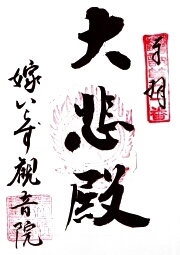 奉拝
大悲殿
嫁いらず観音院